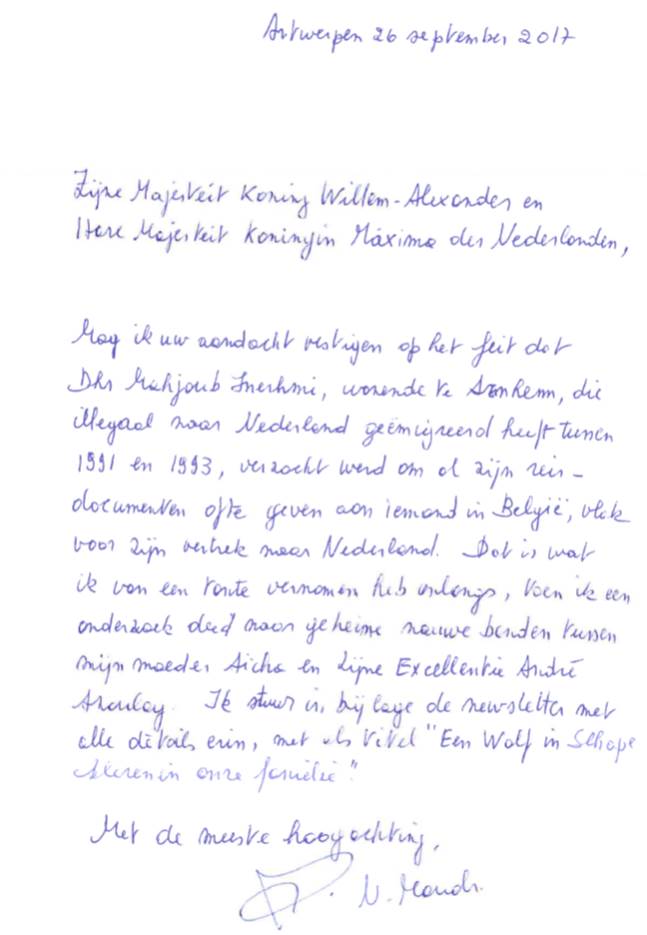 Antwerpen 26 september 2017
Zijne Majesteit Koning Willem-Alexander en
Hare Majesteit Koningin Máxima der Nederlanden,
Mag ik uw aandacht vestigen op het feit dat
Dhr Mahjoub Inerhmi, wonende te Arnhem, die
illegaal naar Nederland geëmigreerd heeft tussen
1991 en 1993, verzocht werd om al zijn reis-
documenten af te geven aan iemand in België, vlak
voor zijn vertrek naar Nederland. Dat is wat
ik van een tante vernomen heb onlangs, toen ik een
onderzoek deed naar geheime nauwe banden tussen
mijn moeder Aicha en Zijne Excellentie André
Azoulay. Ik stuur in bijlage de newsletter met
alle details erin, met als titel "Een Wolf in Schape
kleren in onze familie".
Met de meeste hoogachting,
N.